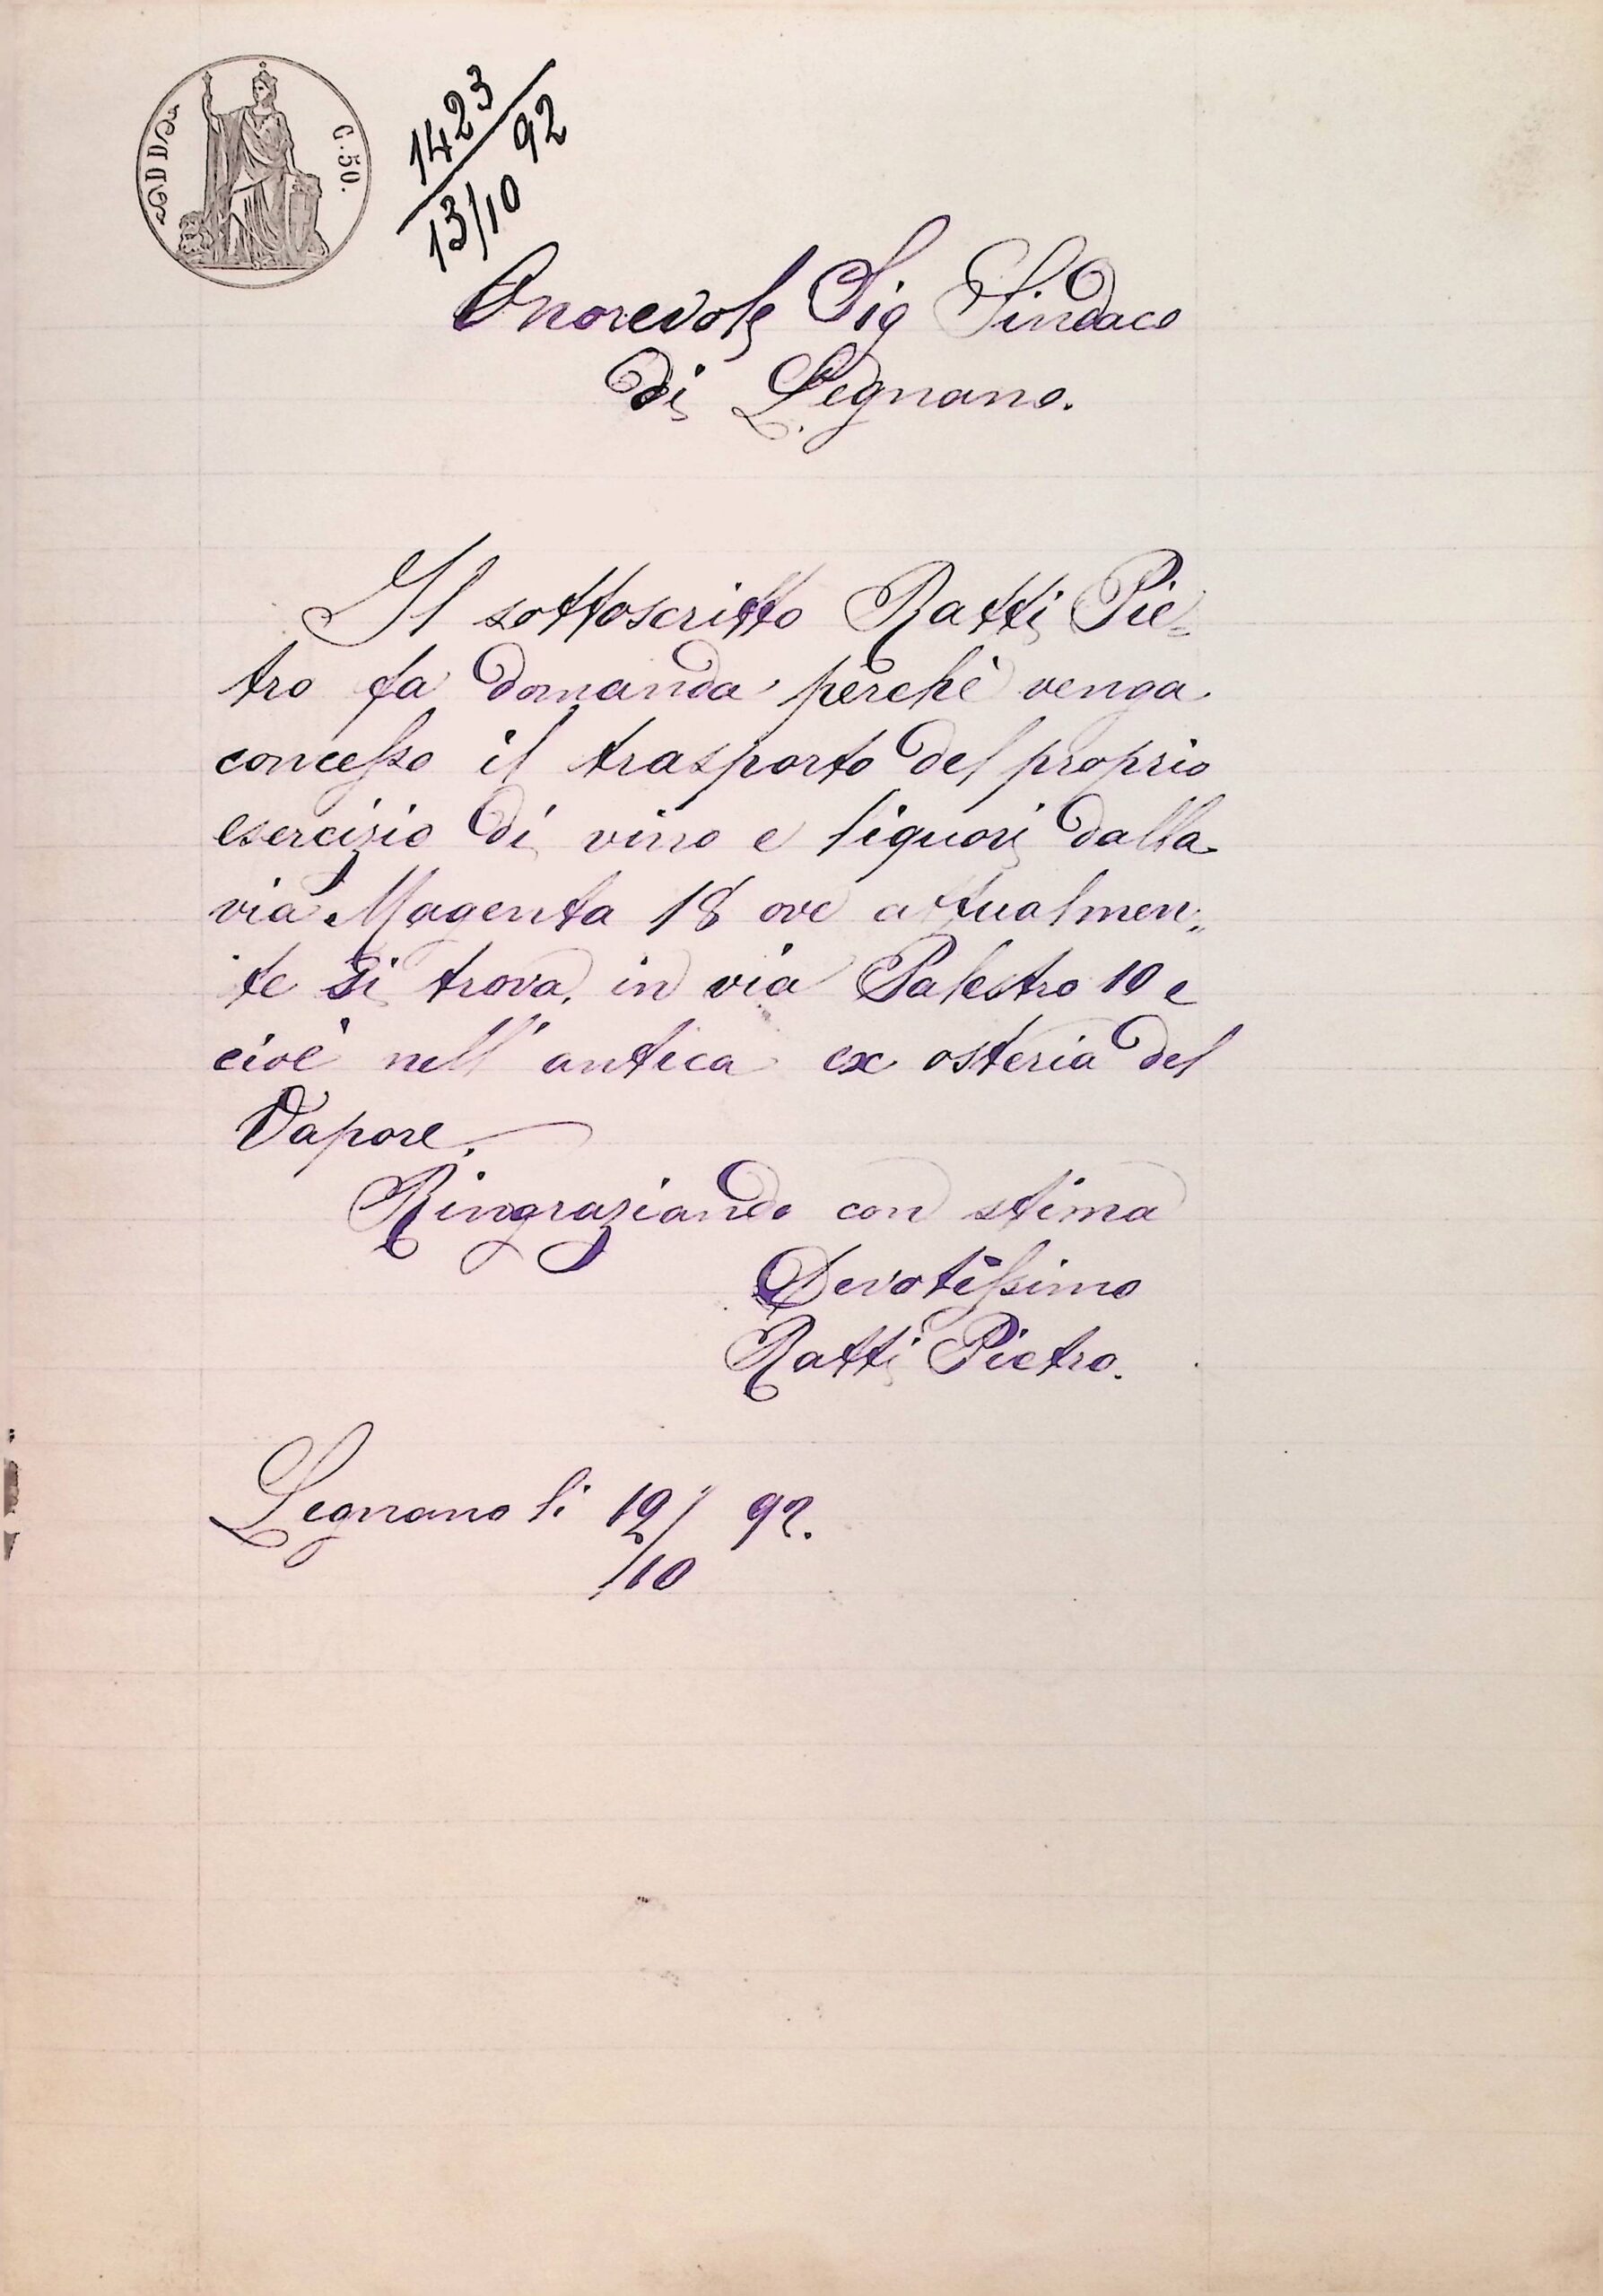 C. 50.
1423
13/10 92
Onorevole Sig Sindaco
di Legnano.
Il sottoscritto Ratti Pie=
tro fa domanda perchè venga
concesso il trasporto del proprio
esercizio di vino e liquori dalla
via Magenta 18 ove attualmen„
te si trova, in via Palestro 10 e
cioè nell'antica ex osteria del
Vapore.
Ringraziando con stima
Devotissimo
Ratti Pietro.
Legnano li 12/10 92.